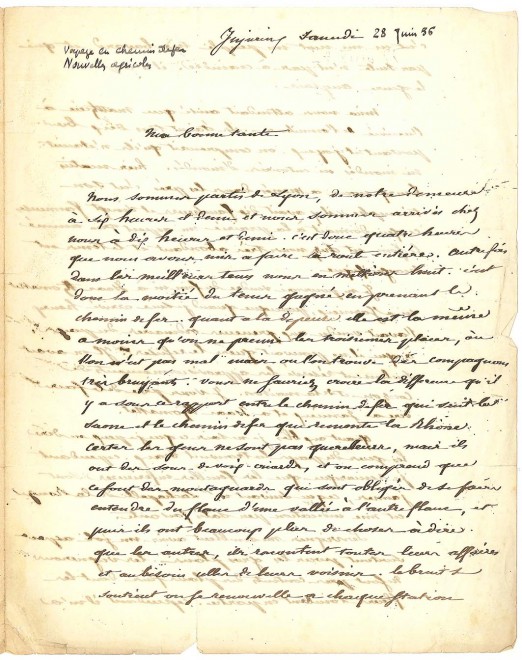 Jujurieux Samedi 28 Juin 56
Voyage en chemin de fer
Nouvelles agricoles
Ma bonne tante
Nous sommes partis de Lyon, de notre demeure
à six heures et demi et nous sommes arrivés chez
nous à dix heures et demi. c'est donc quatre heures
que nous avons mis a faire la route entière. autrefois
dans les meilleurs tems nous en mettions huit. c'est
donc la moitié du tems gagné en prenant le
chemin de fer. quant a la dépense elle est la même
a moins qu'on ne prenne les troisièmes places, ou
l'on n'est pas mal mais ou l'on trouve des compagnons
très bruyants. vous ne sauriez croire la différence qu'il
y a sous ce rapport entre le chemin de fer qui suit la
Saone et le chemin de fer qui remonte le Rhône.
Certes les gens ne sont pas querelleurs mais ils
ont des sons de voix criards, et on comprend que
ce sont des montagnards qui sont obligés de se faire
entendre du flanc d'une vallée à l'autre flanc, et
puis ils ont beaucoup plus de choses à dire
que les autres, ils racontent toutes leurs affaires
et au besoin celles de leurs voisins. le bruit se
soutient ou se renouvelle a chaque station